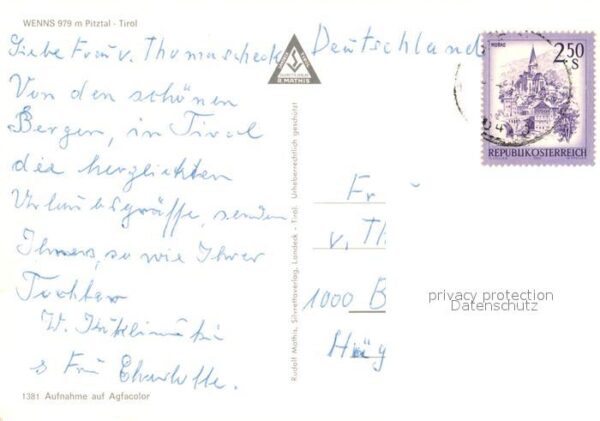 WENNS 979 m Pitztal - Tirol
Liebe Frau v. Thomascheck
Von den schönen
Bergen, in Tirol
die herzlichsten
Urlaubsgrüße, senden
Ihnen, so wie Ihrer
Tochter
W.
Frau Charlotte.
1381 Aufnahme auf Agfacolor
R. MATHIS
Rudolf Mathis, Silvrettaverlag, Landeck - Tirol. Urheberrechtlich geschützt
Deutschland
MURAU
2.50 S
REPUBLIK ÖSTERREICH
Fr
v. Th
1000 B
privacy protection
Datenschutz